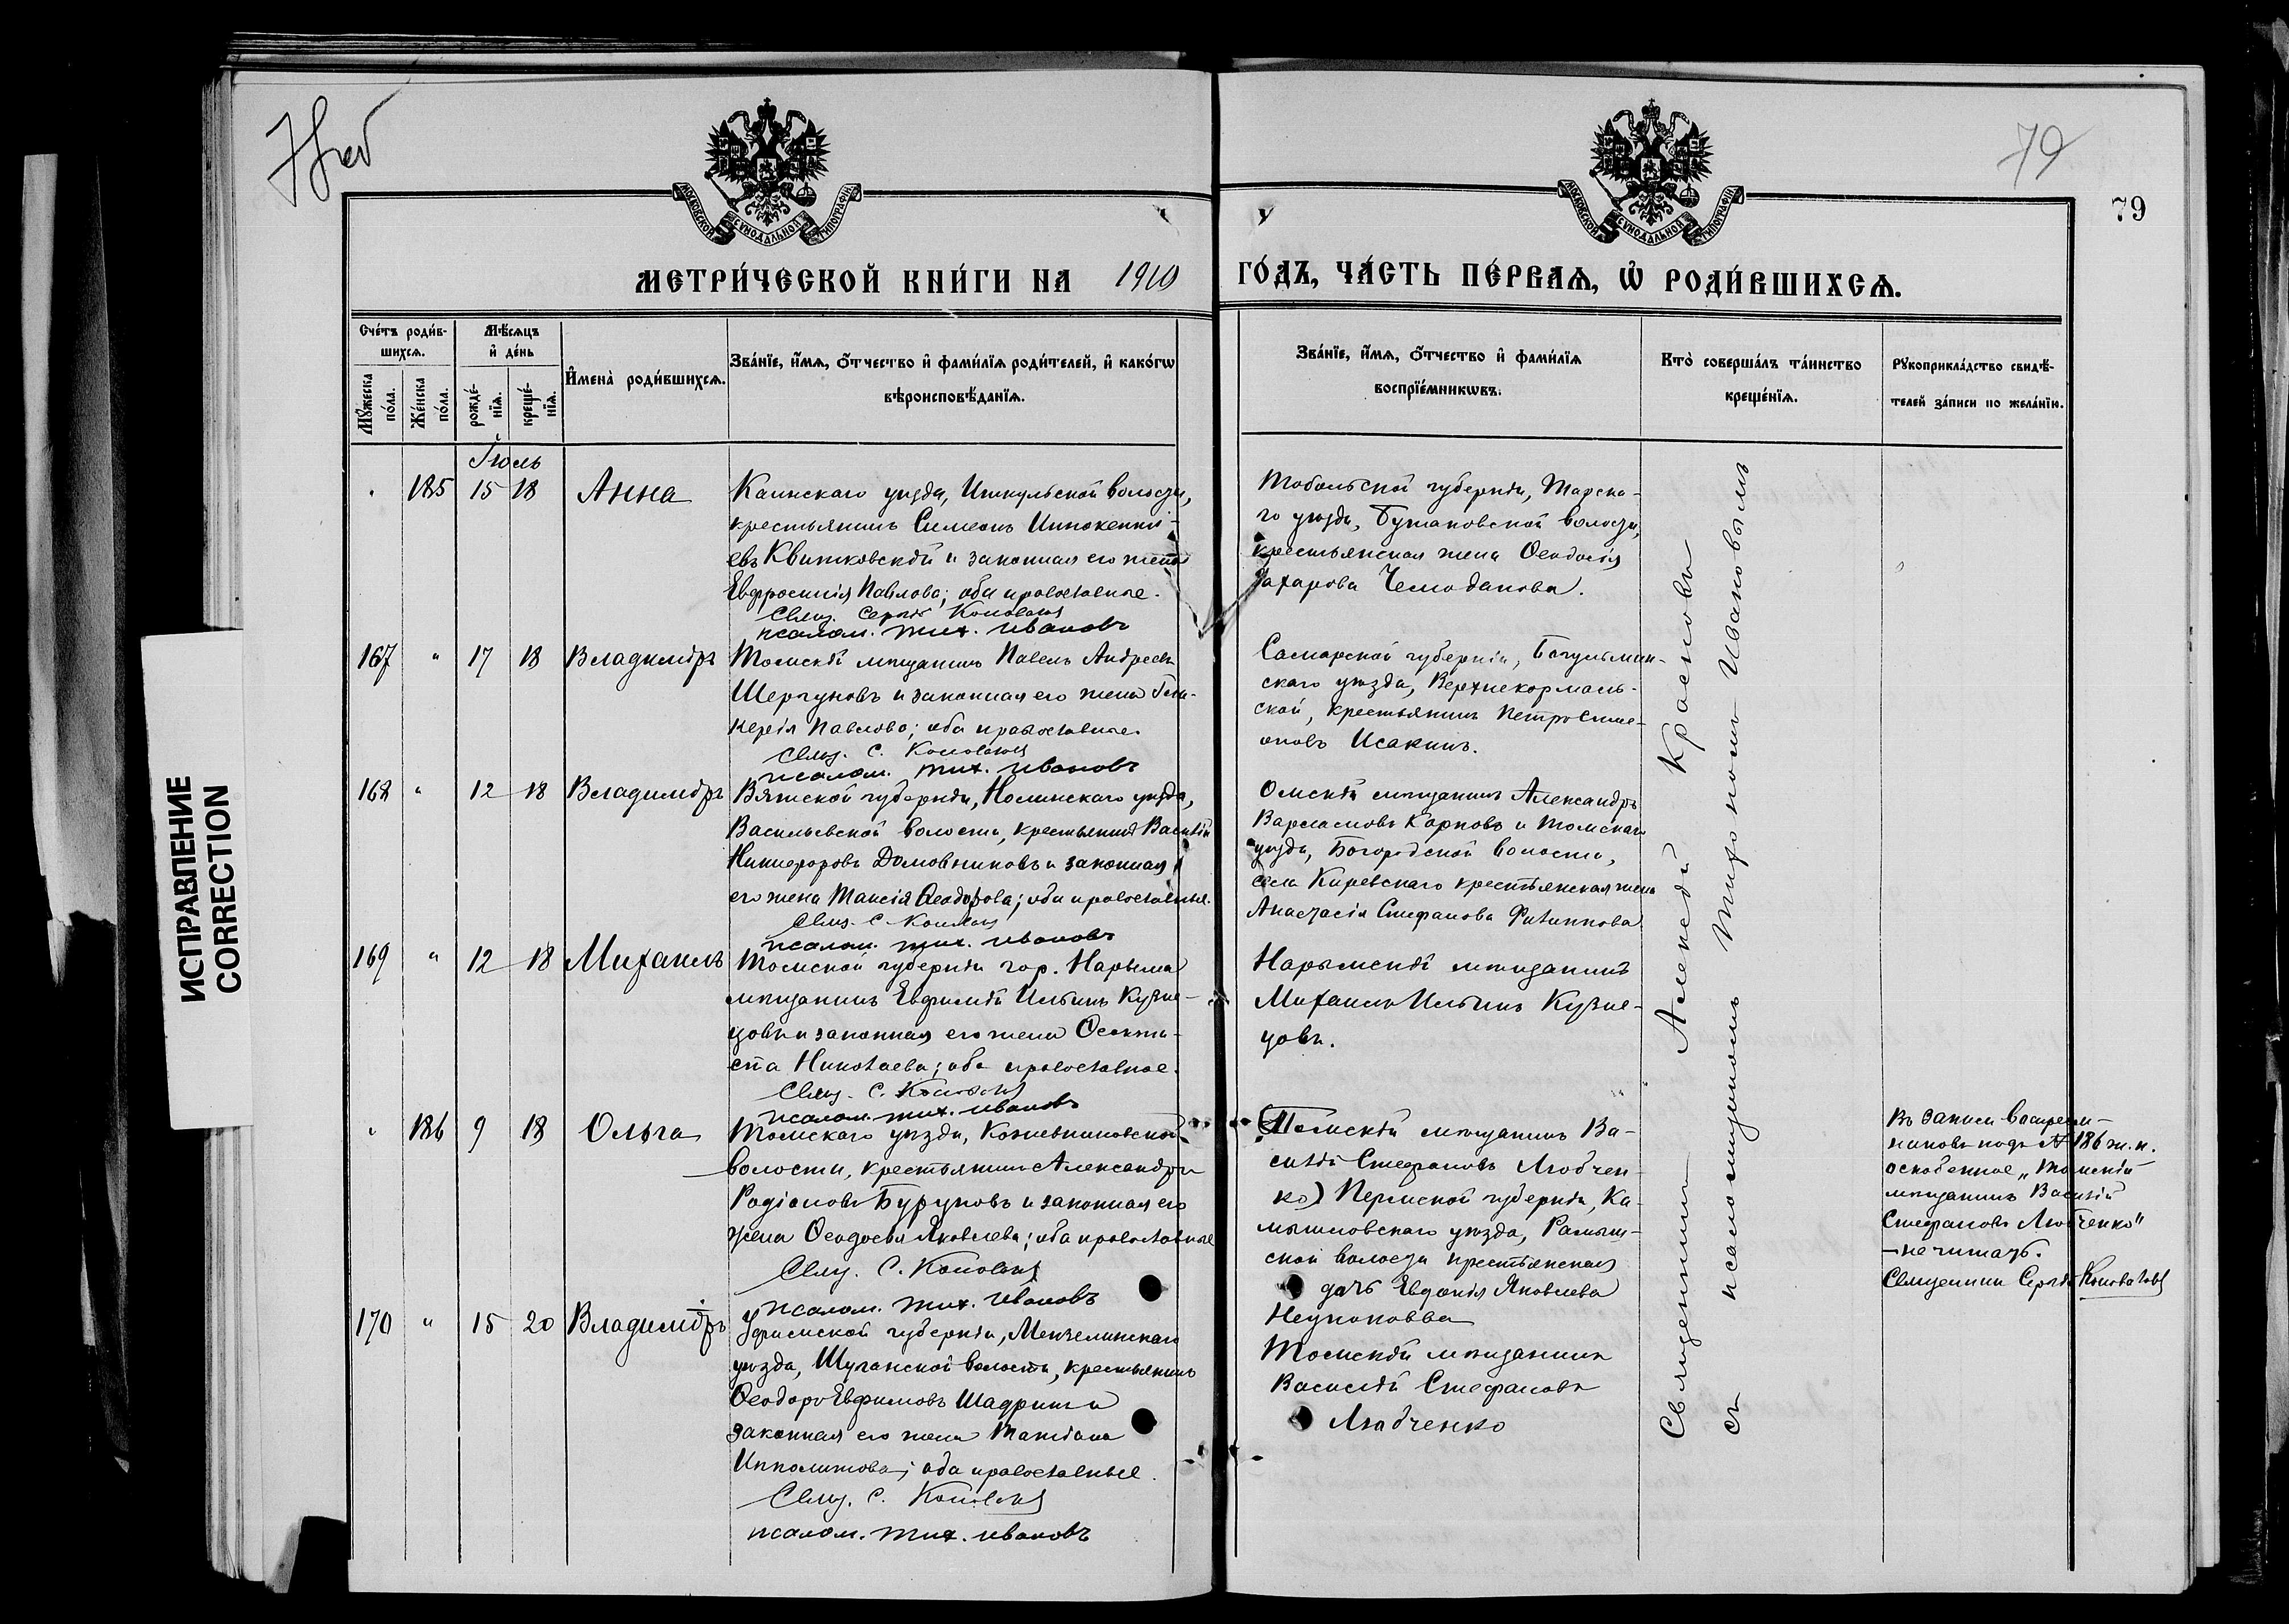 79
79
МОСКОВСКОЙ СѴНОДАЛЬНОЙ ТИПОГРАФІИ
МОСКОВСКОЙ СѴНОДАЛЬНОЙ ТИПОГРАФІИ
МЕТРИ́ЧЕСКОЙ КНИ́ГИ НА 1910 ГО́ДЪ, ЧА́СТЬ ПЕ́РВАѦ, Ѡ҆ РОДИ́ВШИХСѦ.
Сче́тъ роди́в-
шихсѧ.
Мꙋ́жеска по́ла.
Же́нска по́ла.
Мѣ́сѧцъ
и҆ де́нь
рожде́-
нїѧ.
креще́-
нїѧ.
И҆мена̀ роди́вшихсѧ.
Зва́нїе, и҆́мѧ, ѻ҆́тчество и҆ фами́лїѧ роди́телей, и҆ како́гѡ
вѣроисповѣ́данїѧ.
Зва́нїе, и҆́мѧ, ѻ҆́тчество и҆ фами́лїѧ
воспрїе́мникѡвъ.
Кто̀ соверша́лъ та́инство
креще́нїѧ.
Рꙋкоприкла́дство свидѣ́-
телей за́писи по жела́нїю.
Іюль
185 15 18 Анна
Каинскаго уѣзда, Иткульской волости,
крестьянинъ Симеонъ Иннокентi-
евъ Квитковскiй и законная его жена
Евфросинiя Павлова; оба православные.
Свящ. Сергiй Коновалов
псалом. Тих. Ивановъ
Тобольской губернiи, Тарска-
го уѣзда, Бутаковской волости,
крестьянская жена Ѳеодосiя
Захарова Чемоданова.
167 " 17 18 Владимiръ
Томскiй мѣщанинъ Павелъ Андреевъ
Шергуновъ и законная его жена Гли-
керiя Павлова; оба православные.
Свящ. С. Коновалов
псалом. Тих. Ивановъ
Самарской губернiи, Бугульмин-
скаго уѣзда, Верхнекармаль-
ской, крестьянинъ Петръ Симе-
оновъ Исакинъ.
168 " 12 18 Владимiръ
Вятской губернiи, Нолинскаго уѣзда,
Васильевской волости, крестьянинъ Василiй
Никифоровъ Домовниковъ и законная
его жена Таисiя Ѳеодорова; оба православные.
Свящ. С. Коновалов
псалом. Тих. Ивановъ
Омскiй мѣщанинъ Александръ
Варлаамовъ Карповъ и Томскаго
уѣзда, Богородской волости,
села Киреевскаго крестьянская жена
Анастасiя Стефанова Филиппова
169 " 12 18 Михаилъ
Томской губернiи гор. Нарыма
мѣщанинъ Евфимiй Ильинъ Кузне-
цовъ и законная его жена Ѳеокти-
ста Николаева; оба православные.
Свящ. С. Коновалов
псалом. Тих. Ивановъ
Нарымскiй мѣщанинъ
Михаилъ Ильинъ Кузне-
цовъ.
" 186 9 18 Ольга
Томскаго уѣзда, Кожевниковской
волости, крестьянинъ Александръ
Родiоновъ Буруновъ и законная его
жена Ѳеодосiя Яковлева; оба православные
Свящ. С. Коновалов
псалом. Тих. Ивановъ
(Томскiй мѣщанинъ Ва-
силiй Стефановъ Любчен-
ко) Пермской губернiи, Ка-
мышловскаго уѣзда,
ской волости крестьянская
дочь Евдокiя Яковлева
Въ записи воспрiем-
никовъ подъ № 186 ж. п.
оскобленное „Томскiй
мѣщанинъ Василiй
Стефановъ Любченко"
— не читать.
Священникъ Сергiй Коновалов
170 " 15 20 Владимiръ
Уфимской губернiи, Мензелинскаго
уѣзда, Шуганской волости, крестьянинъ
Ѳеодоръ Евфимовъ Шадринъ и
законная его жена Татiана
Ипполитова; оба православные.
Свящ. С. Коновалов
псалом. Тих. Ивановъ
Томскiй мѣщанинъ
Василiй Стефановъ
Любченко
Священникъ Алексѣй Красновъ
съ псаломщикомъ Тихономъ Ивановымъ
ИСПРАВЛЕНИЕ
CORRECTION